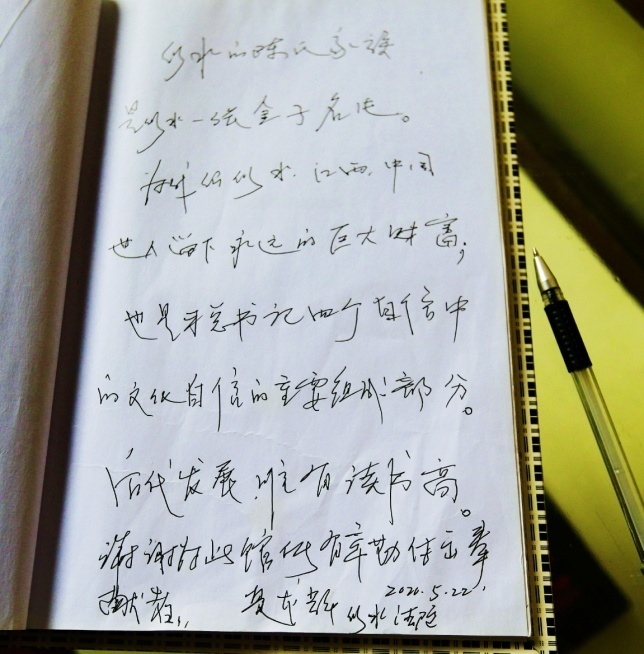 修水的陈氏家族
是修水一张金子名片。
为我们修水、江西、中国
世人留下永远的巨大财富；
也是习总书记四个自信中
的文化自信的重要组成部分。
后代发展，唯有读书高。
谢谢对此馆作有辛勤付出
2020.5.22.
修水法院